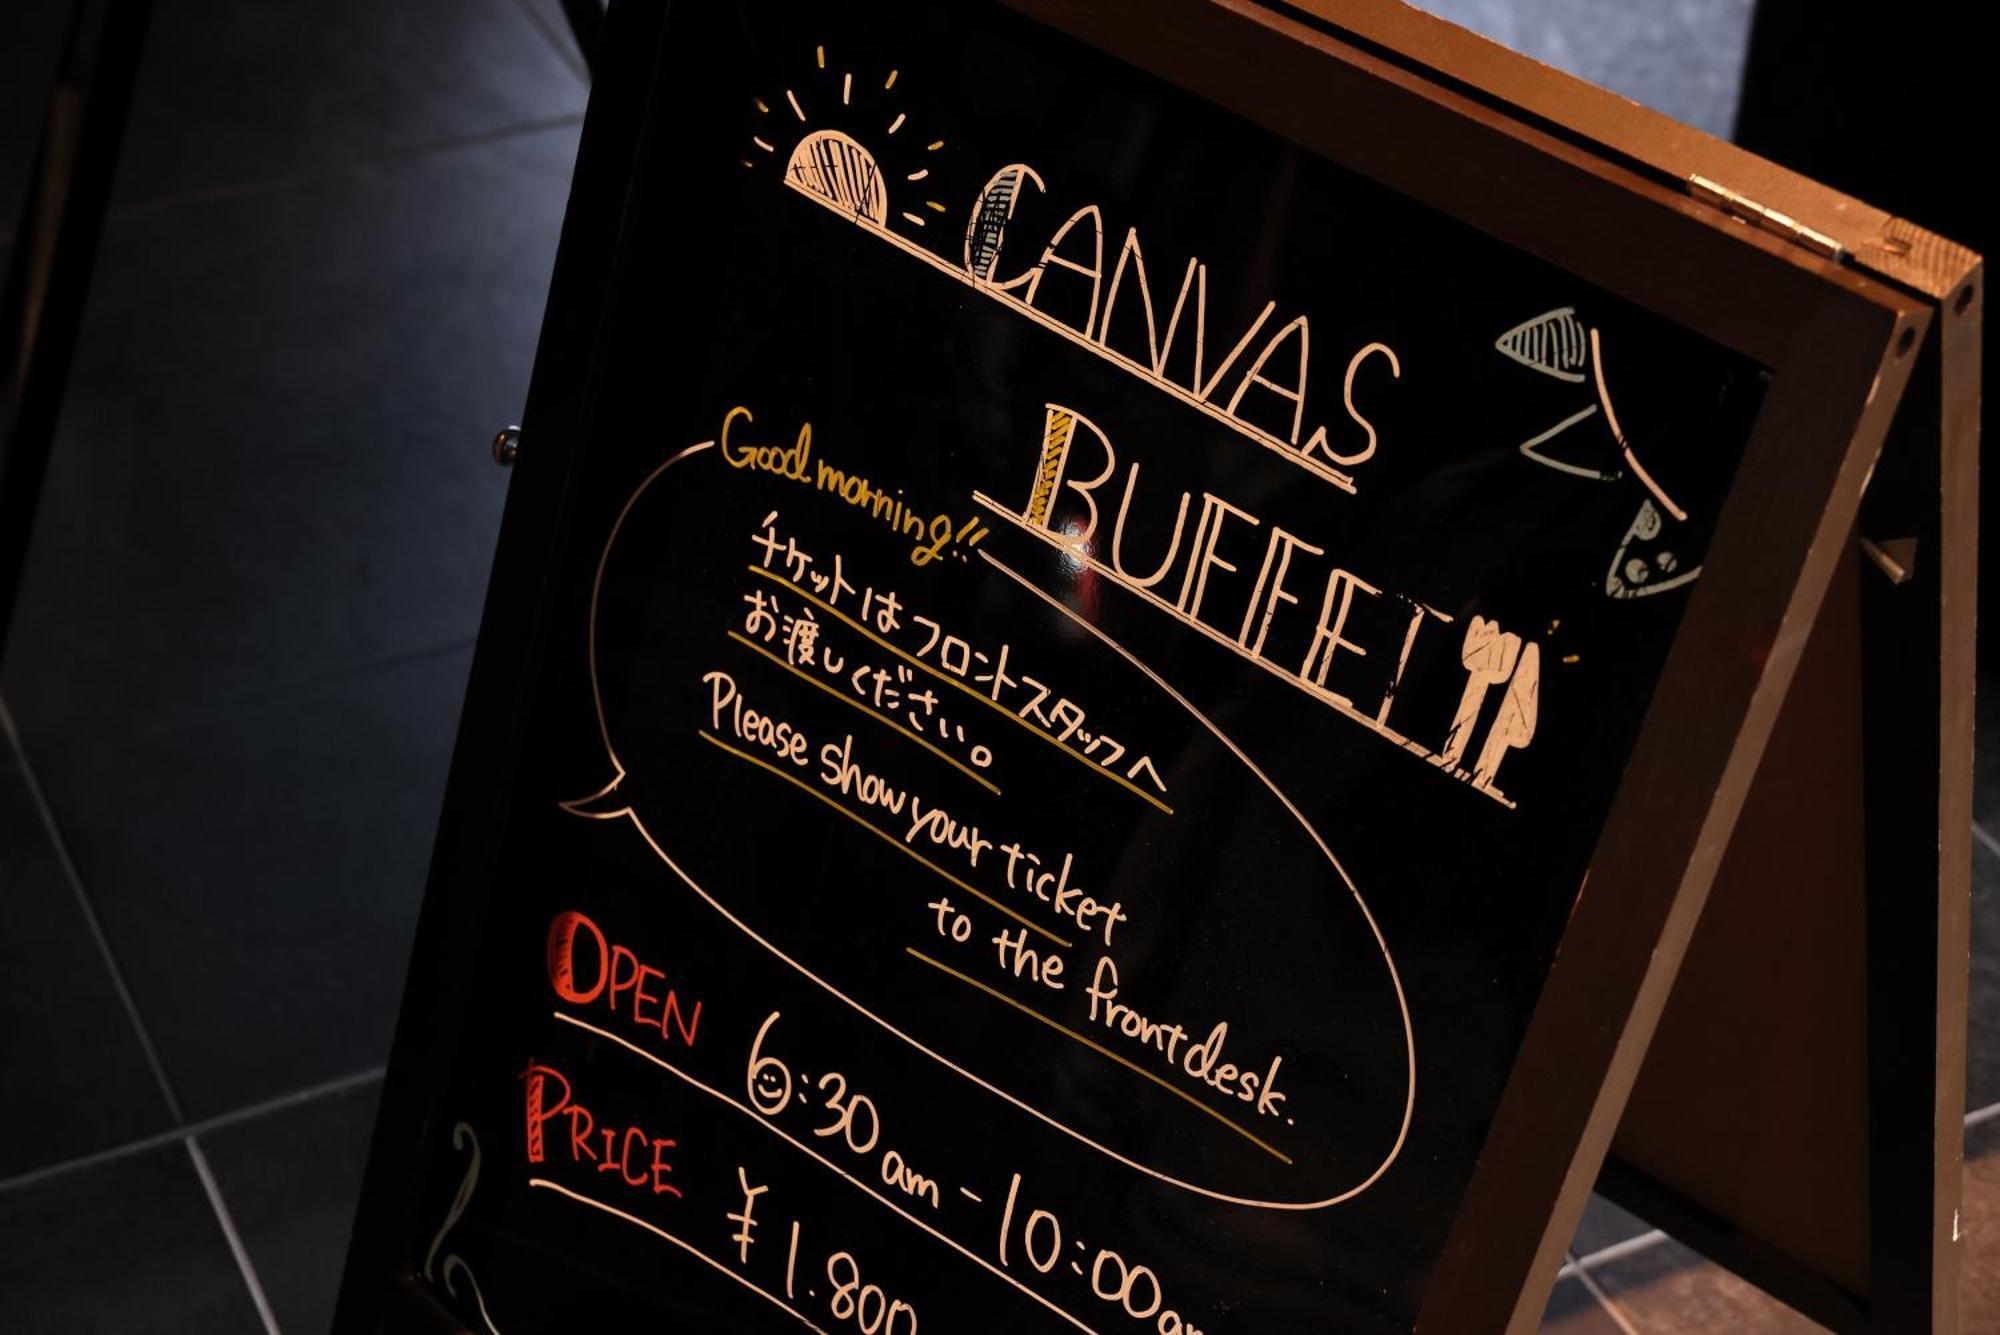 CANVAS
BUFFET
Good morning!!
チケットはフロントスタッフへ
お渡しください。
Please show your ticket
to the front desk.
OPEN 6:30 am - 10:00am
PRICE ¥1.800